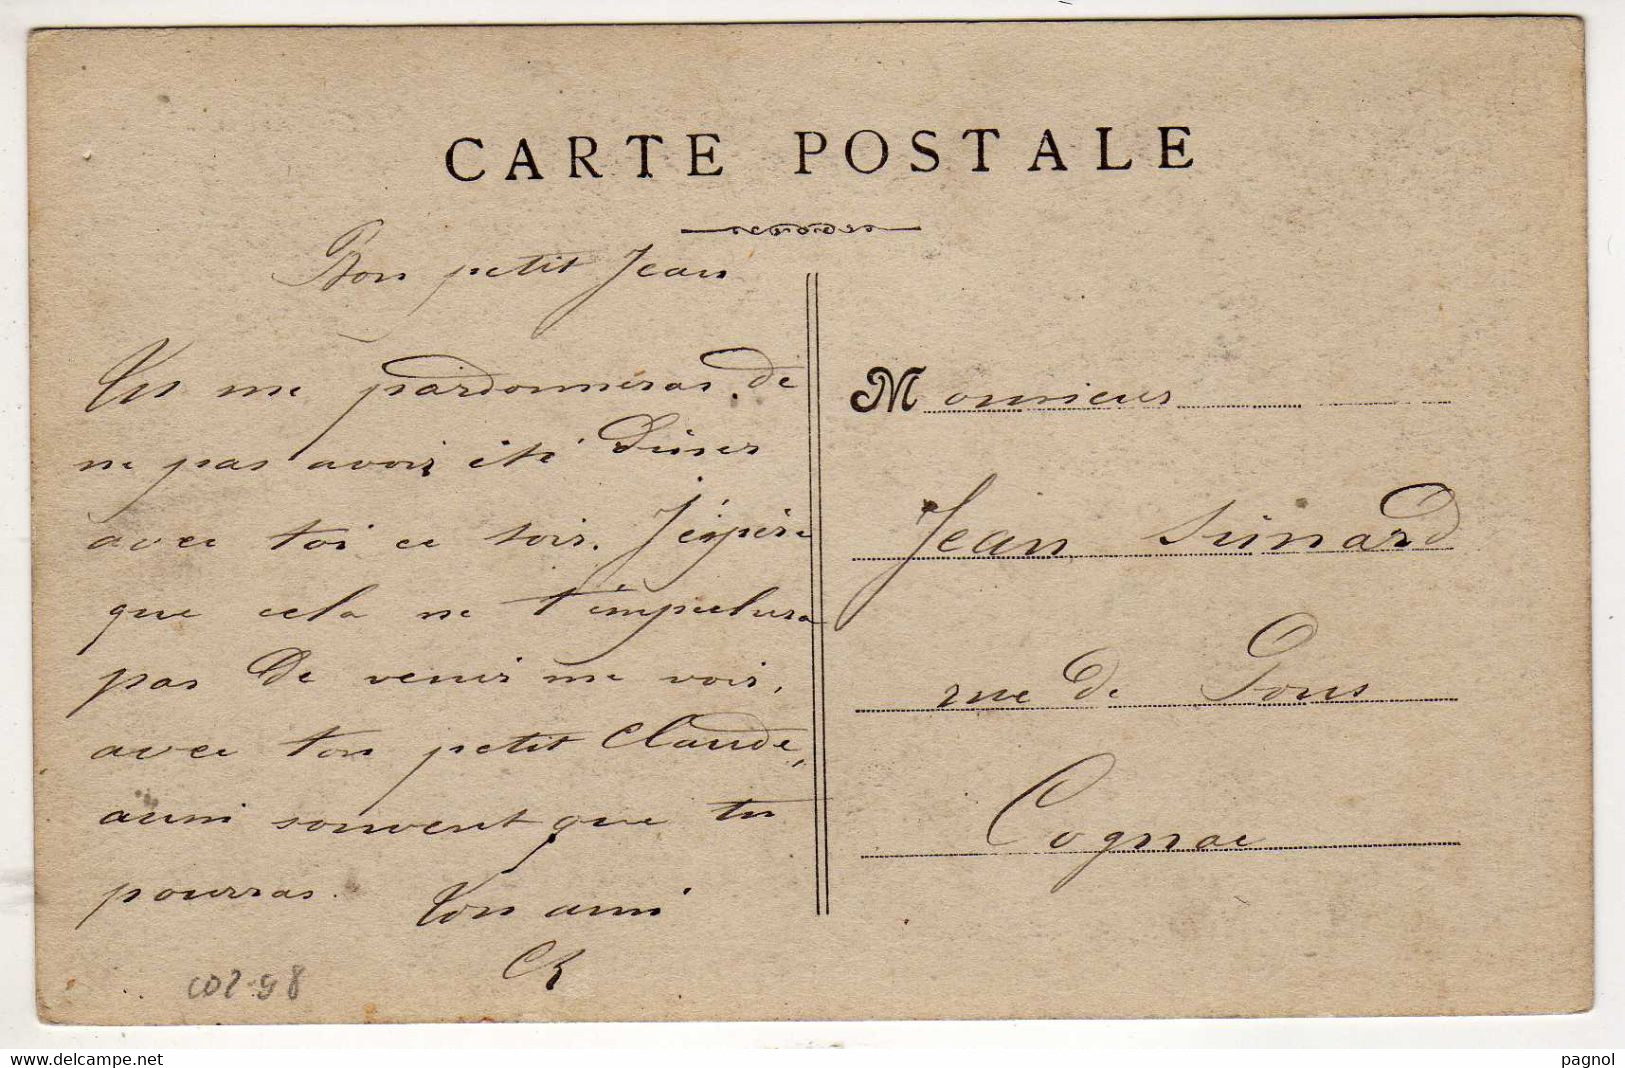 CARTE POSTALE
Bon petit Jean
Tu me pardonneras de
ne pas avoir été Diner
avec toi ce soir. J'éspère
que cela ne t'émpechera
pas De venir me voir,
avec ton petit Claude,
aussi souvent que tu
pourras. Ton ami
Ch
Monsieur
Jean Sunard
rue de Pons
Cognac
www.delcampe.net
pagnol